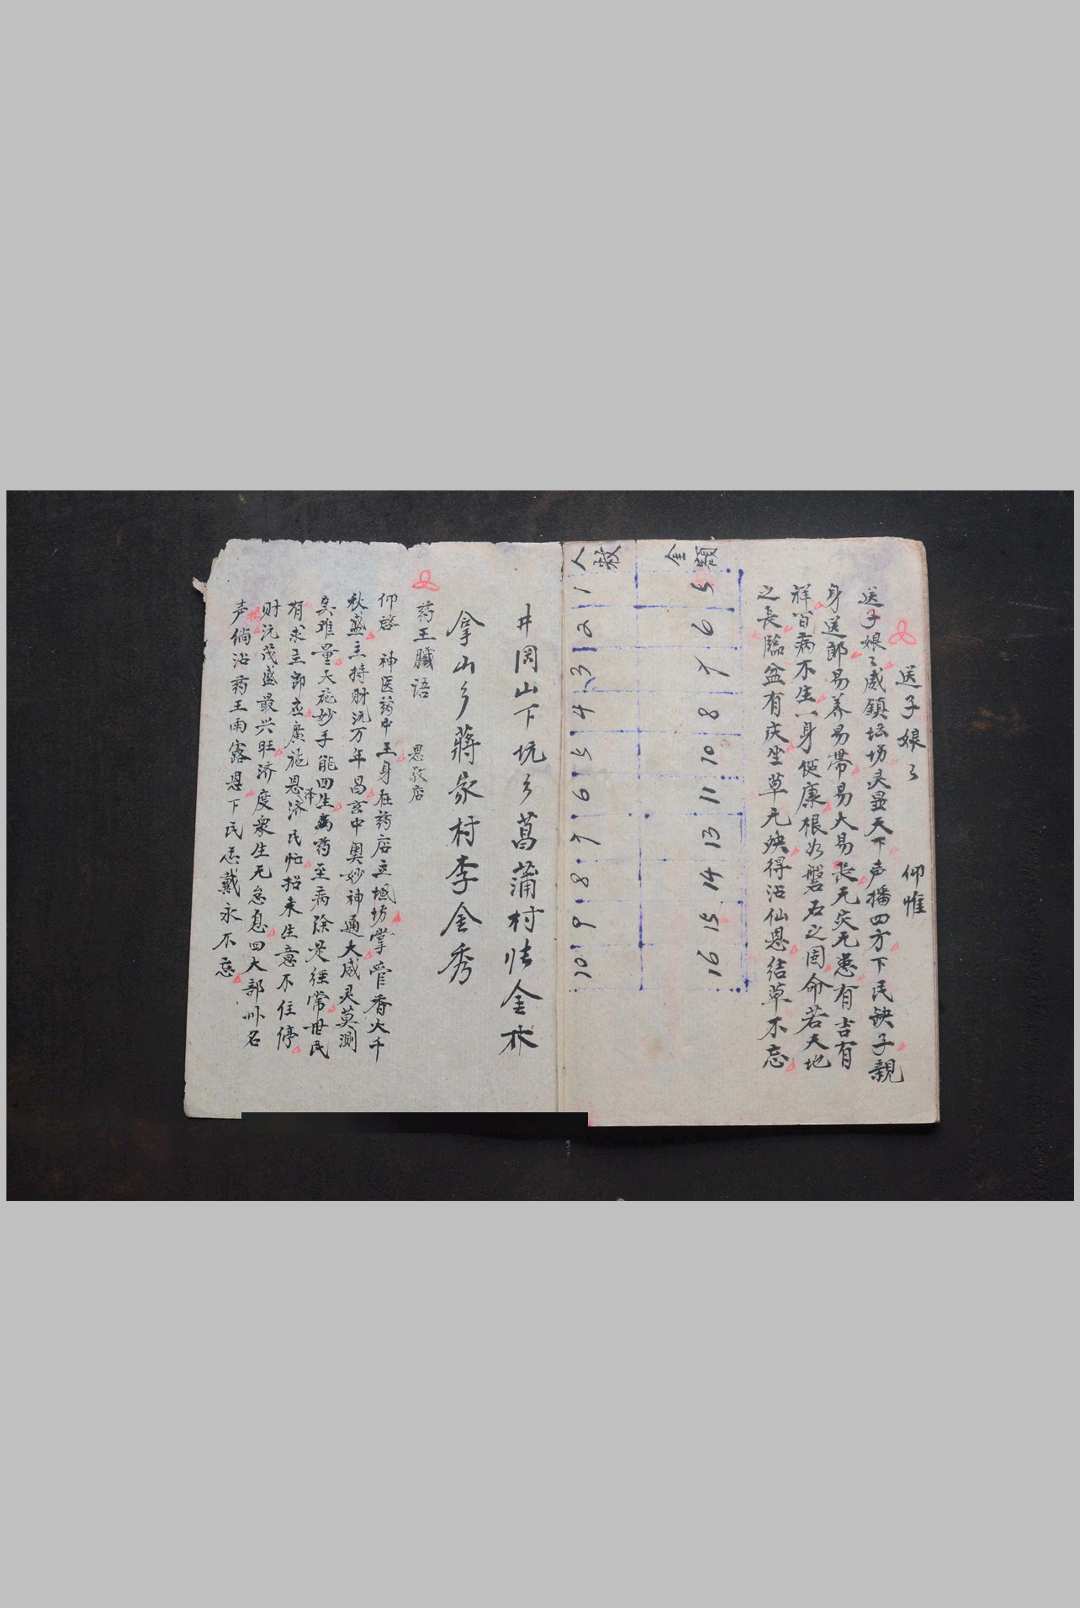 送子娘々 仰惟
送子娘々威鎮坛坊灵显天下声播四方下民缺子親
身送郎易养易带易大易长无灾无患有吉有
祥百病不生一身健康根如磐石之固命若天地
之長臨盆有庆坐草无殃得沾仙恩结草不忘
金额 5 6 7 8 10 11 13 14 15 16
人数 1 2 3 4 5 6 7 8 9 10
井岡山下坑乡菖蒲村 金林
拿山乡蒋家村李金秀
药王牘语
仰啓 神医药中王身在药店立城坊掌管香火千
秋盛主持财沅万年昌玄中奥妙神通大威灵莫測
真难量天施妙手能回生药至病除是经常世民
有求主即应廣施恩济民忙招来生意不住停
财沅茂盛最兴旺济度衆生无怠息四大部州名
声倘沾药王雨露恩下民志戴永不忘